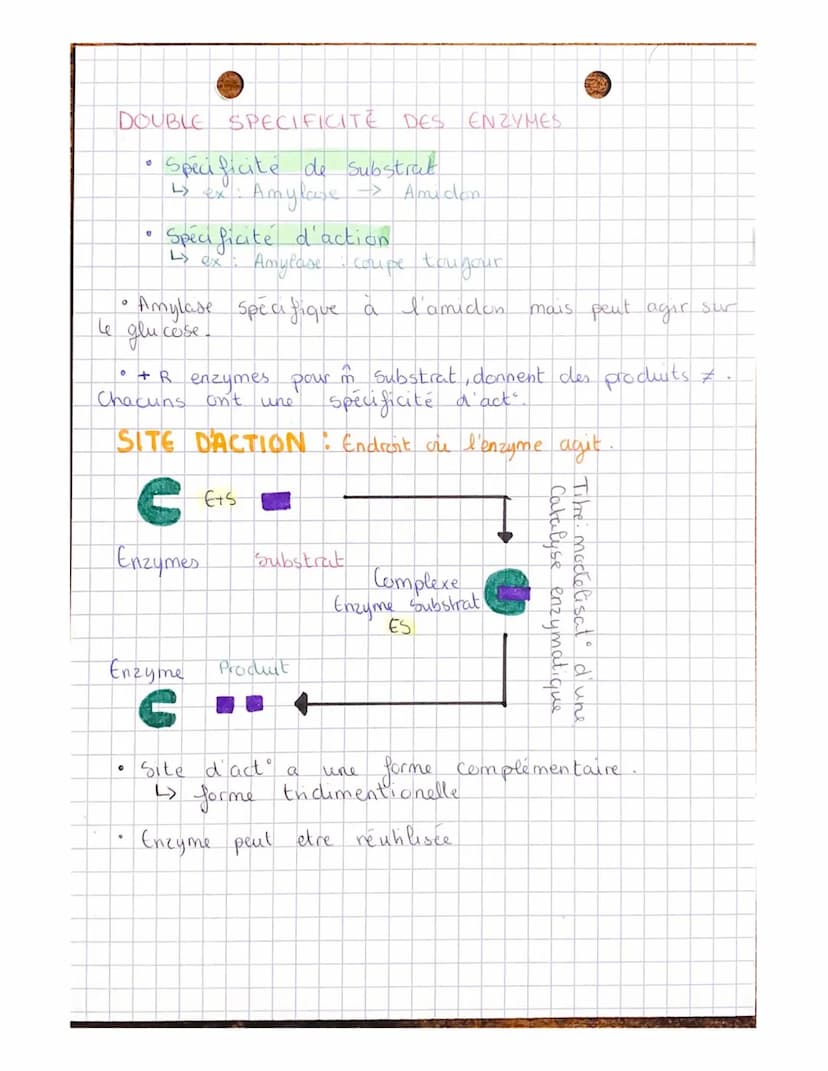 DOUBLE SPECIFICITÉ DES ENZYMES
• Spécificité de substrat
↳ ex : Amylase → Amidon
• Spécificité d'action
↳ ex : Amylase : coupe tougour
• Amylase spécifique à l'amidon mais peut agir sur
le glucose.
• + R enzymes pour m̂ substrat, donnent des produits ≠.
Chacuns ont une spécificité d'act°.
SITE D'ACTION : Endroit où l'enzyme agit.
E+S
Enzymes substrat
Complexe
Enzyme substrat
ES
Titre: modélisat° d'une
Catalyse enzymatique
Enzyme Produit
• Site d'act° a une forme complémentaire.
↳ forme tridimentionelle
• Enzyme peut etre réutilisée